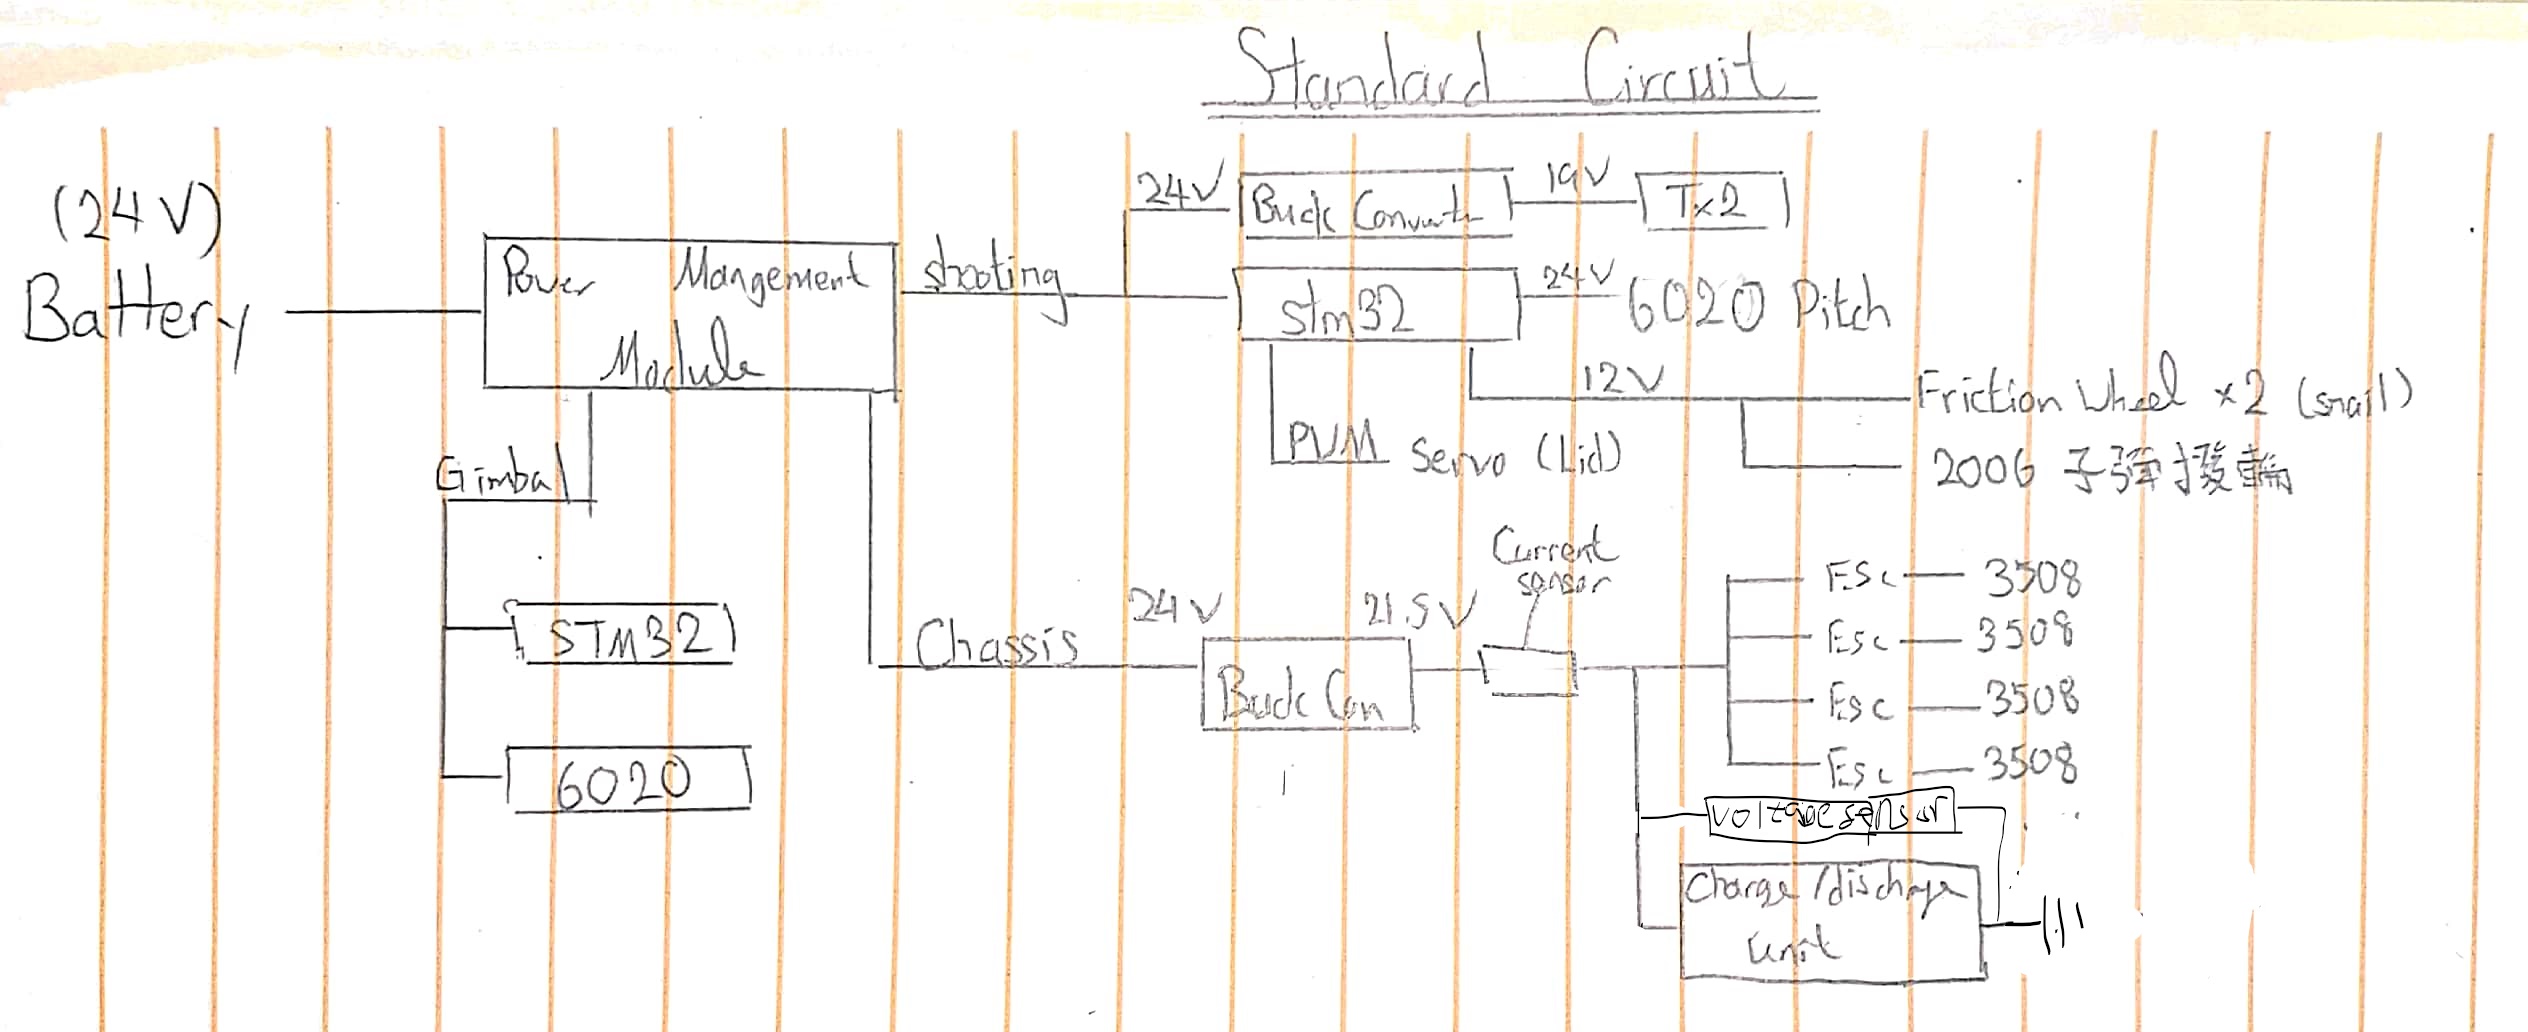 Standard Circuit
(24V)
Battery
Power Mangement
Module
shooting
24V
Buck
19V
Tx2
stm32
24V
6020 Pitch
12V
Friction Wheel x2 (snail)
2006 子彈撥輪
PWM Servo (Lid)
Gimbal
STM32
6020
Chassis
24V
Buck Con
21.5V
Current
sensor
ESC 3508
Esc 3508
Esc 3508
Esc 3508
voltage sensor
Charge/discharge
unit